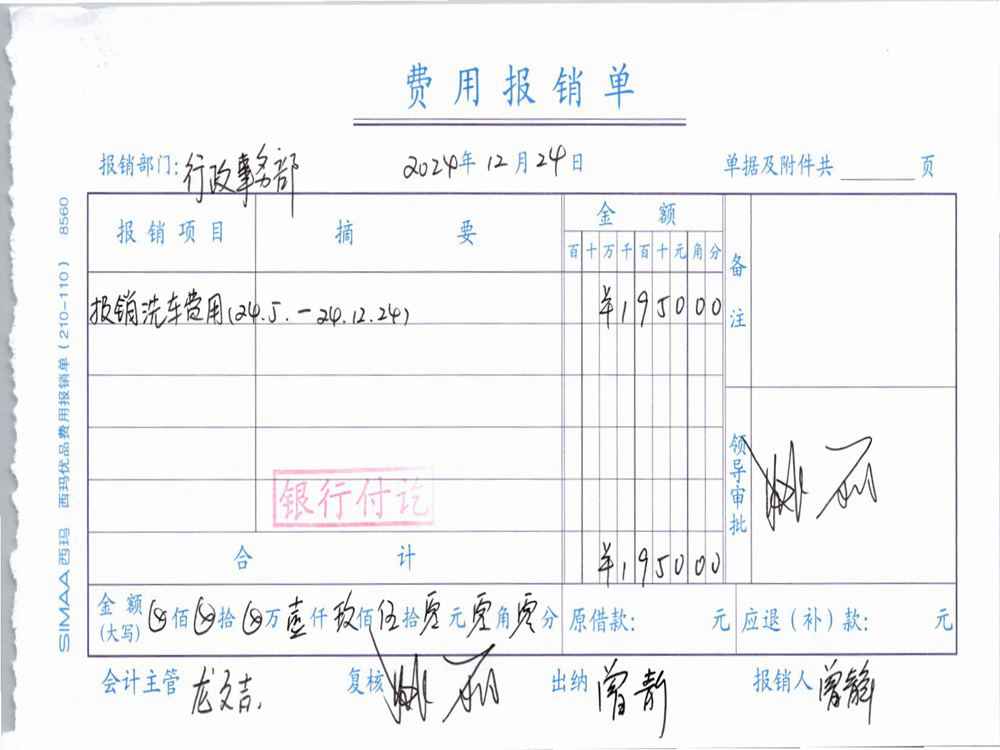 费用报销单
报销部门: 行政事务部 2024年12月24日 单据及附件共 页
报销项目 摘要 金额 备注
百十万千百十元角分
报销洗车费用(24.5.—24.12.24) ¥1950 00
领导审批
银行付讫
合计 ¥1950 00
金额(大写) ⊗佰⊗拾⊗万壹仟玖佰伍拾零元零角零分 原借款: 元 应退(补)款: 元
会计主管 龙文吉 复核 出纳 曾静 报销人 曾静
SIMAA西玛 西玛优品费用报销单(210-110) 8560